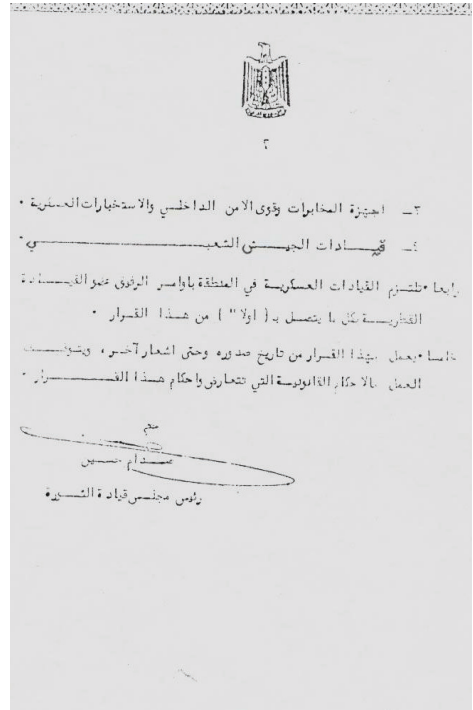 ٢
٣ــ اجهزة المخابرات وقوى الامن الداخلي والاستخبارات العسكرية ٠
٤ــ قيــادات الجيــش الشعبــــــي ٠
رابعا ٠ تلتــزم القيادات العسكريــة في المنطقة باوامــر الرفيق عضو القيــادة
القطريـــة بكل ما يتصــل بـ ( اولا " ) من هــذا القــرار ٠
خامسا ٠ يعمل بهذا القرار من تاريخ صدوره وحتى اشعار آخــر ، ويتوقــف
العمل بالاحكام القانونيــة التي تتعارض واحكام هــذا القــــرار ٠
صــدام حسـين
رئيس مجلــس قيادة الثــورة